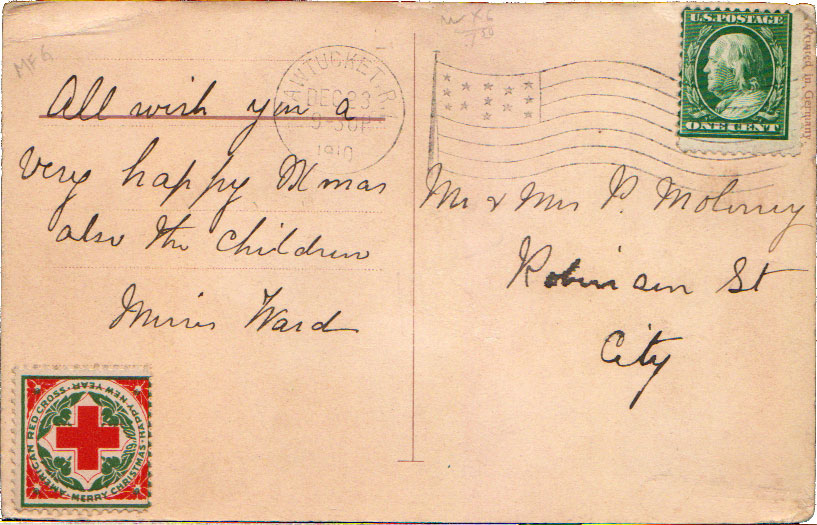 MF6
All wish you a
very happy Xmas
also the children
Ward
PAWTUCKET, R.I.
DEC 23
9-30P
1910
U.S. POSTAGE
ONE CENT
Printed in Germany
Mr & Mrs P.
Robinson St
City
AMERICAN RED CROSS • HAPPY NEW YEAR •
MERRY CHRISTMAS • HAPPY NEW YEAR